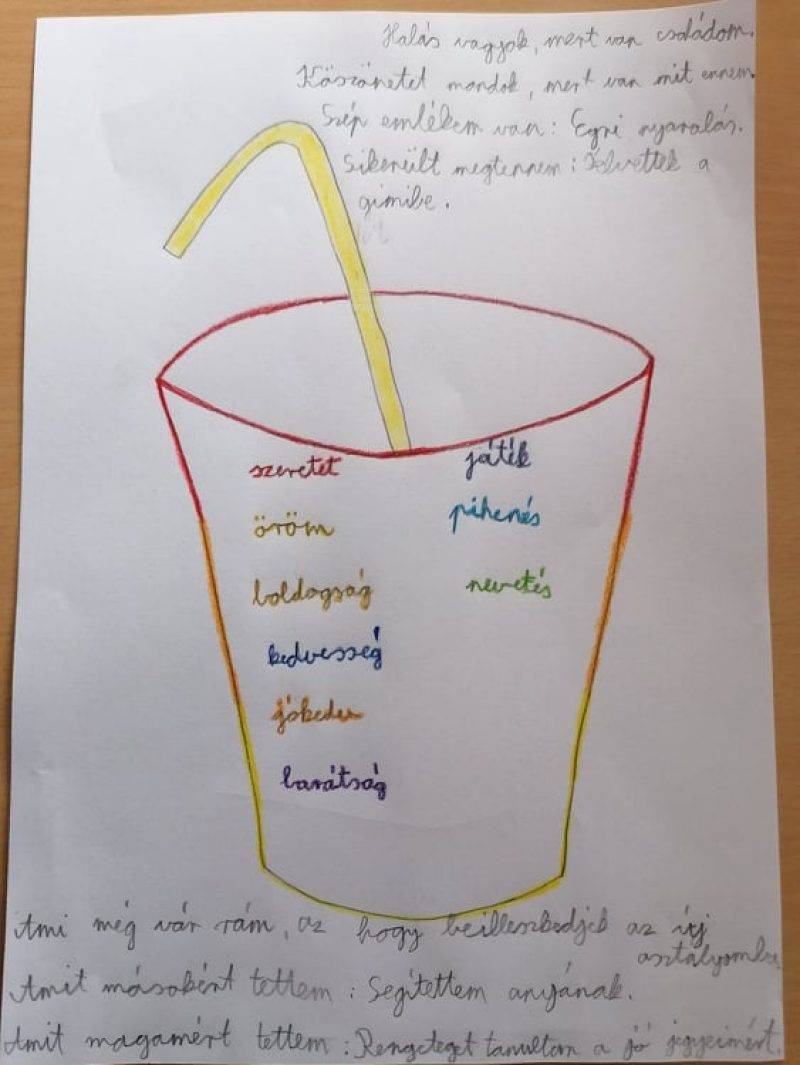 Halás vagyok, mert van családom.
Köszönetet mondok, mert van mit ennem.
Szép emlékem van: Egri nyaralás.
Sikerült megtennem: Felvettek a
gimibe.
szeretet
öröm
boldogság
kedvesség
jókedv
barátság
játék
pihenés
nevetés
Ami még vár rám, az hogy beilleszkedjek az új
osztályomba
Amit másokért tettem: Segítettem anyának.
Amit magamért tettem: Rengeteget tanultam a jó jegyeimért.